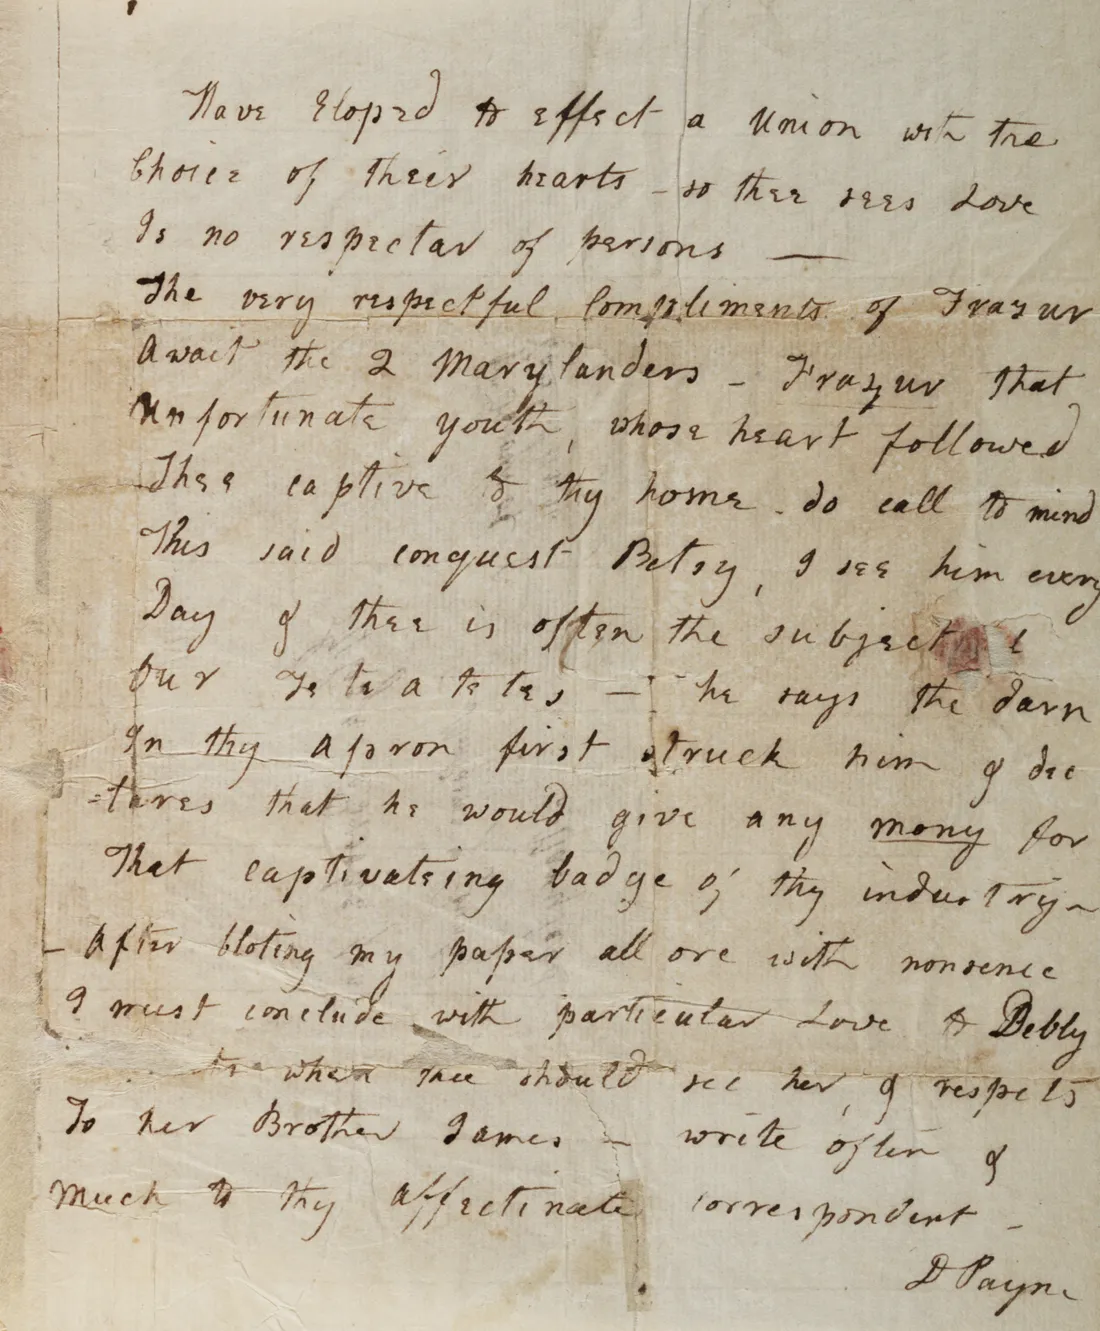 Have Eloped to effect a Union with the
Choice of their hearts – so thee sees Love
Is no respectar of persons —
The very respectful Compliments of Frazur
Await the 2 Marylanders – Frazur that
Unfortunate youth, whose heart followed
Thee captive to thy home – do call to mind
This said conquest Betsy, I see him every
Day & thee is often the subject
Our Te te a te te s – he says the darn
In thy Apron first struck him & dec
=lares that he would give any mony for
That captivateing badge of thy industry –
– After bloting my paper all ore with nonsence
I must conclude with particular Love to Debby
when thee should see her, & respects
To her Brother James – write often &
much to thy affectinate correspondent –
D Payne